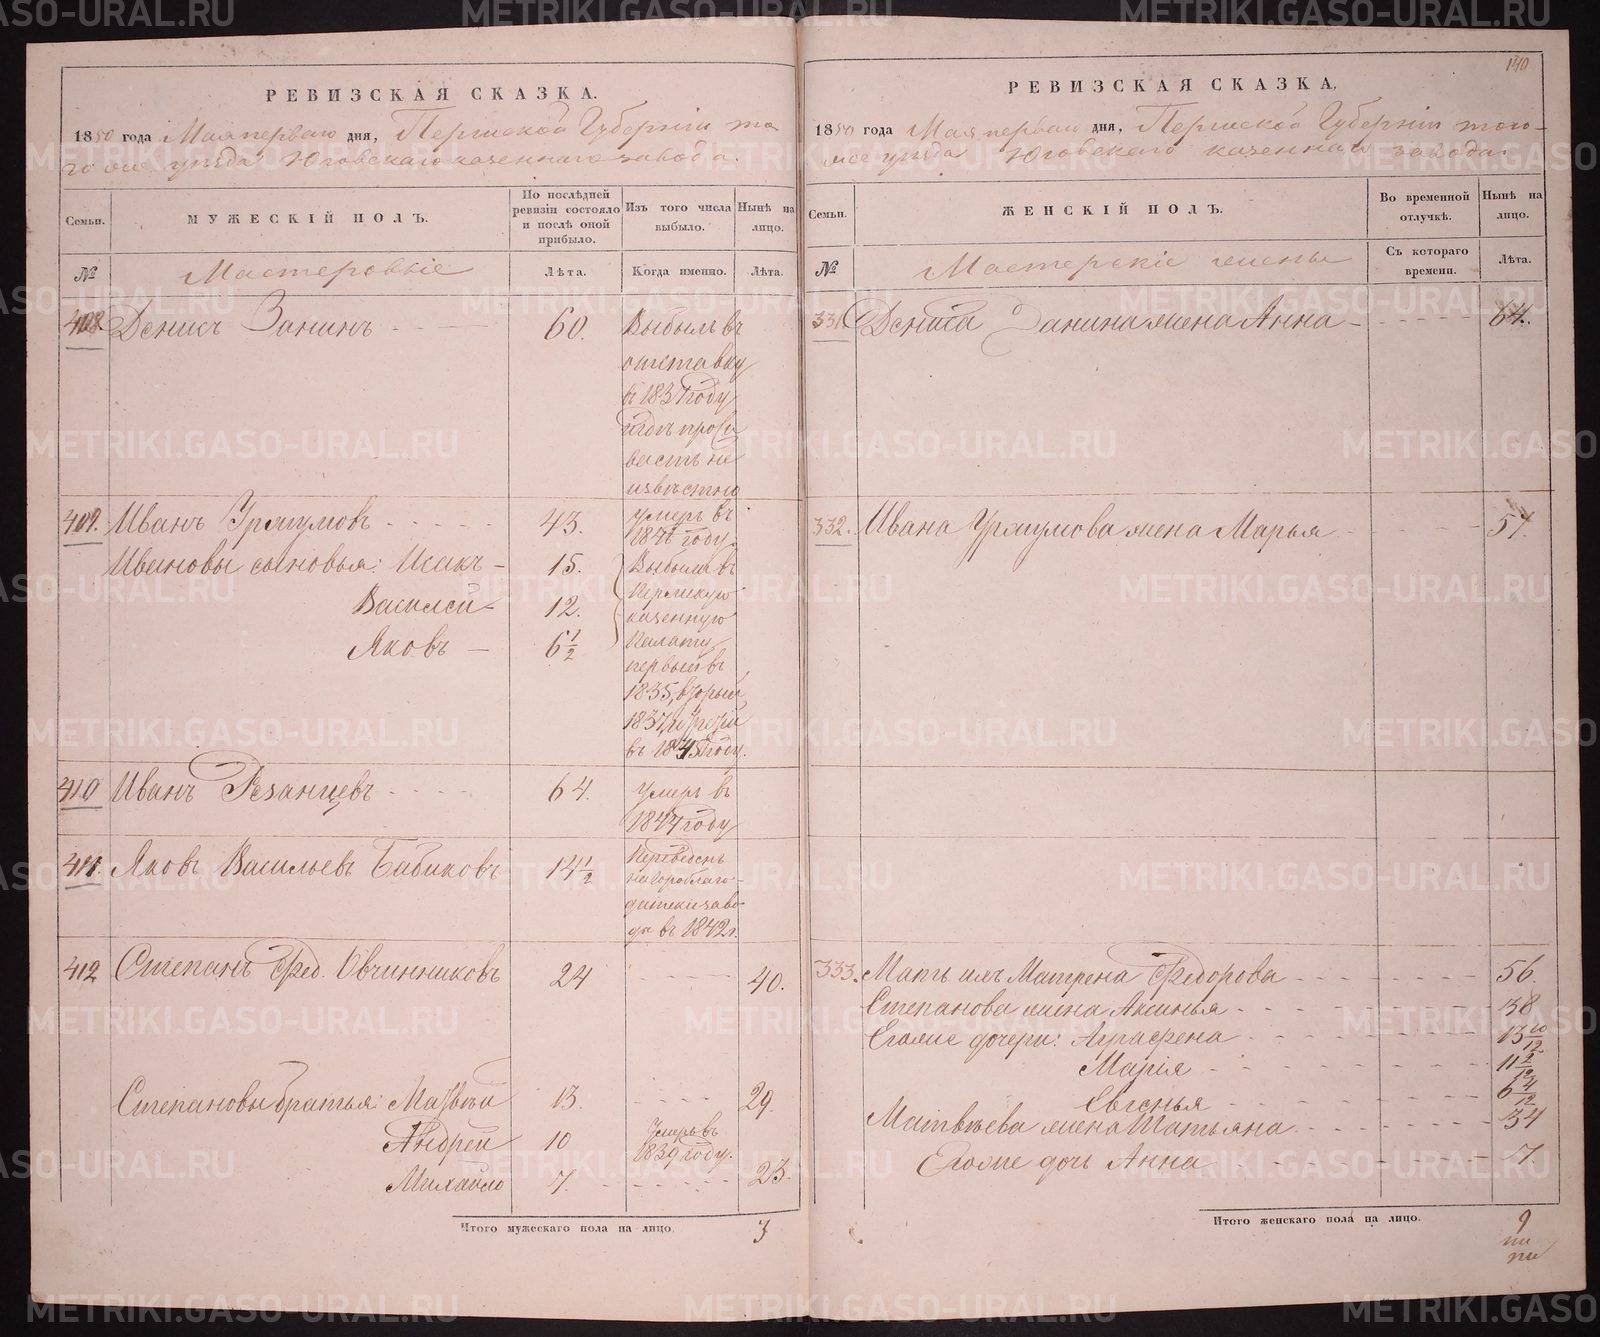 РЕВИЗСКАЯ СКАЗКА.
1850 года Мая перваго дня, Пермской Губерніи то
го же уезда Юговскаго казеннаго завода.
Семьи.
МУЖЕСКІЙ ПОЛЪ.
По послѣдней ревизіи состояло и послѣ оной прибыло.
Изъ того числа выбыло.
Нынѣ на лицо.
№
Мастеровые
Лѣта.
Когда именно.
Лѣта.
408. Денисъ Занинъ 60. Выбылъ въ
отставку
въ 1837 году
неизвѣстно
409. Иванъ Уржумовъ 43. умеръ въ
году
Ивановы сыновья: Исакъ 15. Выбыли въ
Василей 12. Пермскую
казенную
Яковъ 6 1/2 Палату
первый въ
1835, вторый
1837, третій
въ году.
410 Иванъ Рязанцевъ 64. умеръ въ
1847 году
411. Яковъ Васильевъ Бабиковъ 14 1/2 Переведенъ
на Гороблаго-
датскіе заво
ды въ 1842 г.
412 Степанъ Фед. Овчинниковъ 24 40.
Степановы братья: Матвей 13. 29.
Андрей 10 умеръ въ
1839 году.
Михайло 7. 23.
Итого мужескаго пола на лицо. 3
140
РЕВИЗСКАЯ СКАЗКА,
1850 года Мая перваго дня, Пермской Губерніи того-
же уезда Юговскаго казеннаго завода.
Семьи.
ЖЕНСКІЙ ПОЛЪ.
Во временной отлучкѣ.
Нынѣ на лицо.
№
Мастерскіе жены
Съ котораго времени.
Лѣта.
331 Дениса Занина жена Анна 64.
332. Ивана Уржумова жена Марья 57.
333. Мать ихъ Матрена Федорова 56.
Степанова жена Аксинья 38
Еголие дочери: Аграфена 13 10/12
Марія 11 2/12
Евгенья 6 4/12
Матвѣева жена Татьяна 34
Еголие дочь Анна 7.
Итого женскаго пола на лицо. 9
METRIKI.GASO-URAL.RU